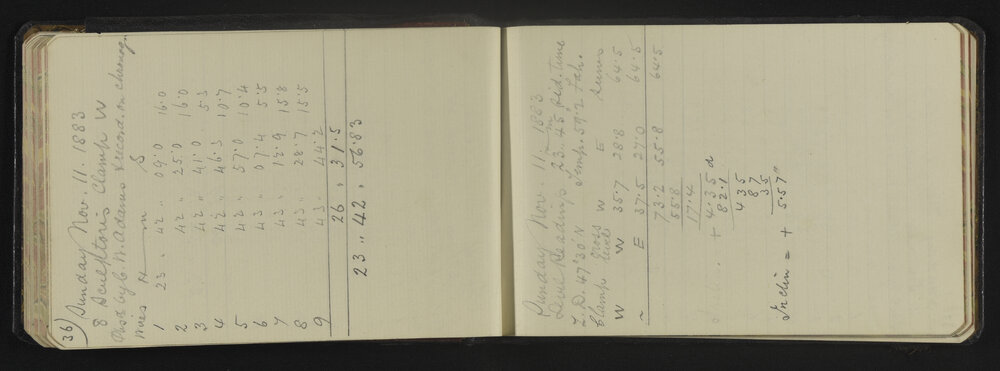 36)
Sunday Nov. 11. 1883
8 Sculptoris Clamp W
Wires H m S
1 23 " 42 " 09.0 16.0
2 42 " 25.0 16.0
3 42 " 41.0 5.3
4 42 " 46.3 10.7
5 42 " 57.0 10.4
6 43 " 07.4 5.5
7 43 " 12.9 15.8
8 43 " 28.7 15.5
9 43 " 44.2
26 " 31.5
23 " 42 " 56.83
Sunday Nov. 11. 1883
Level Readings 23 h 45 m Sid. time
Z.D. 47°30 N Temp. 59.2 Fah.
Clamp Cross level W E Sums
W W 35.7 28.8 64.5
" E 37.5 27.0 64.5
73.2 55.8 64.5
55.8
17.4
+ 4.35 d
82.1
435
87
35
Inclin = + 5.57"